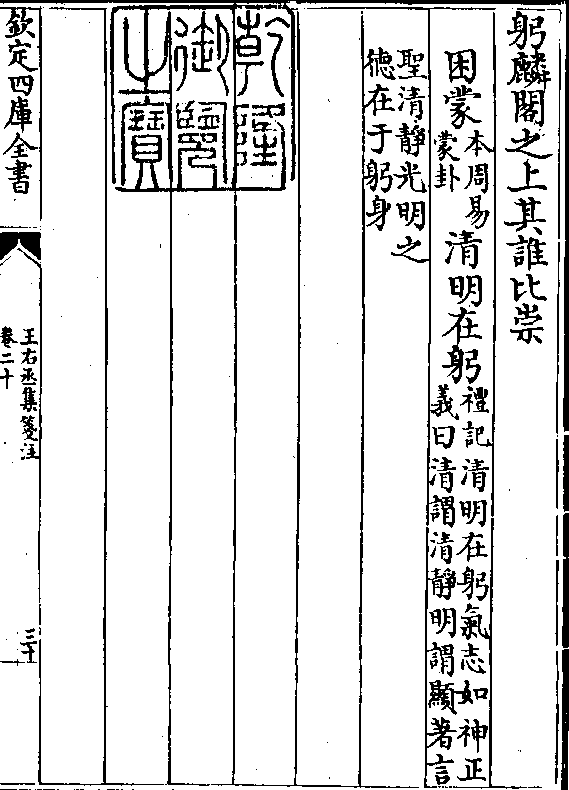 躬麟閣之上其誰比崇
困蒙本周易蒙卦清明在躬禮記清明在躬氣志如神正義曰清謂清靜明謂顯著言
聖清靜光明之德在于躬身
乾隆御覽之寶
欽定四庫全書
王右丞集箋注
卷二十
三十一